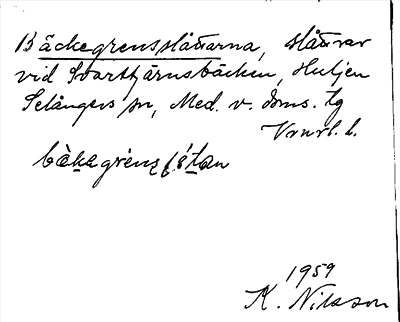 Bäckegrensslåttarna, slåttrar
vid Svarttjärnsbäcken, Huljen
Selångers sn, Med. v. doms. tg
Vnrl. l.
1959
K. Nilsson